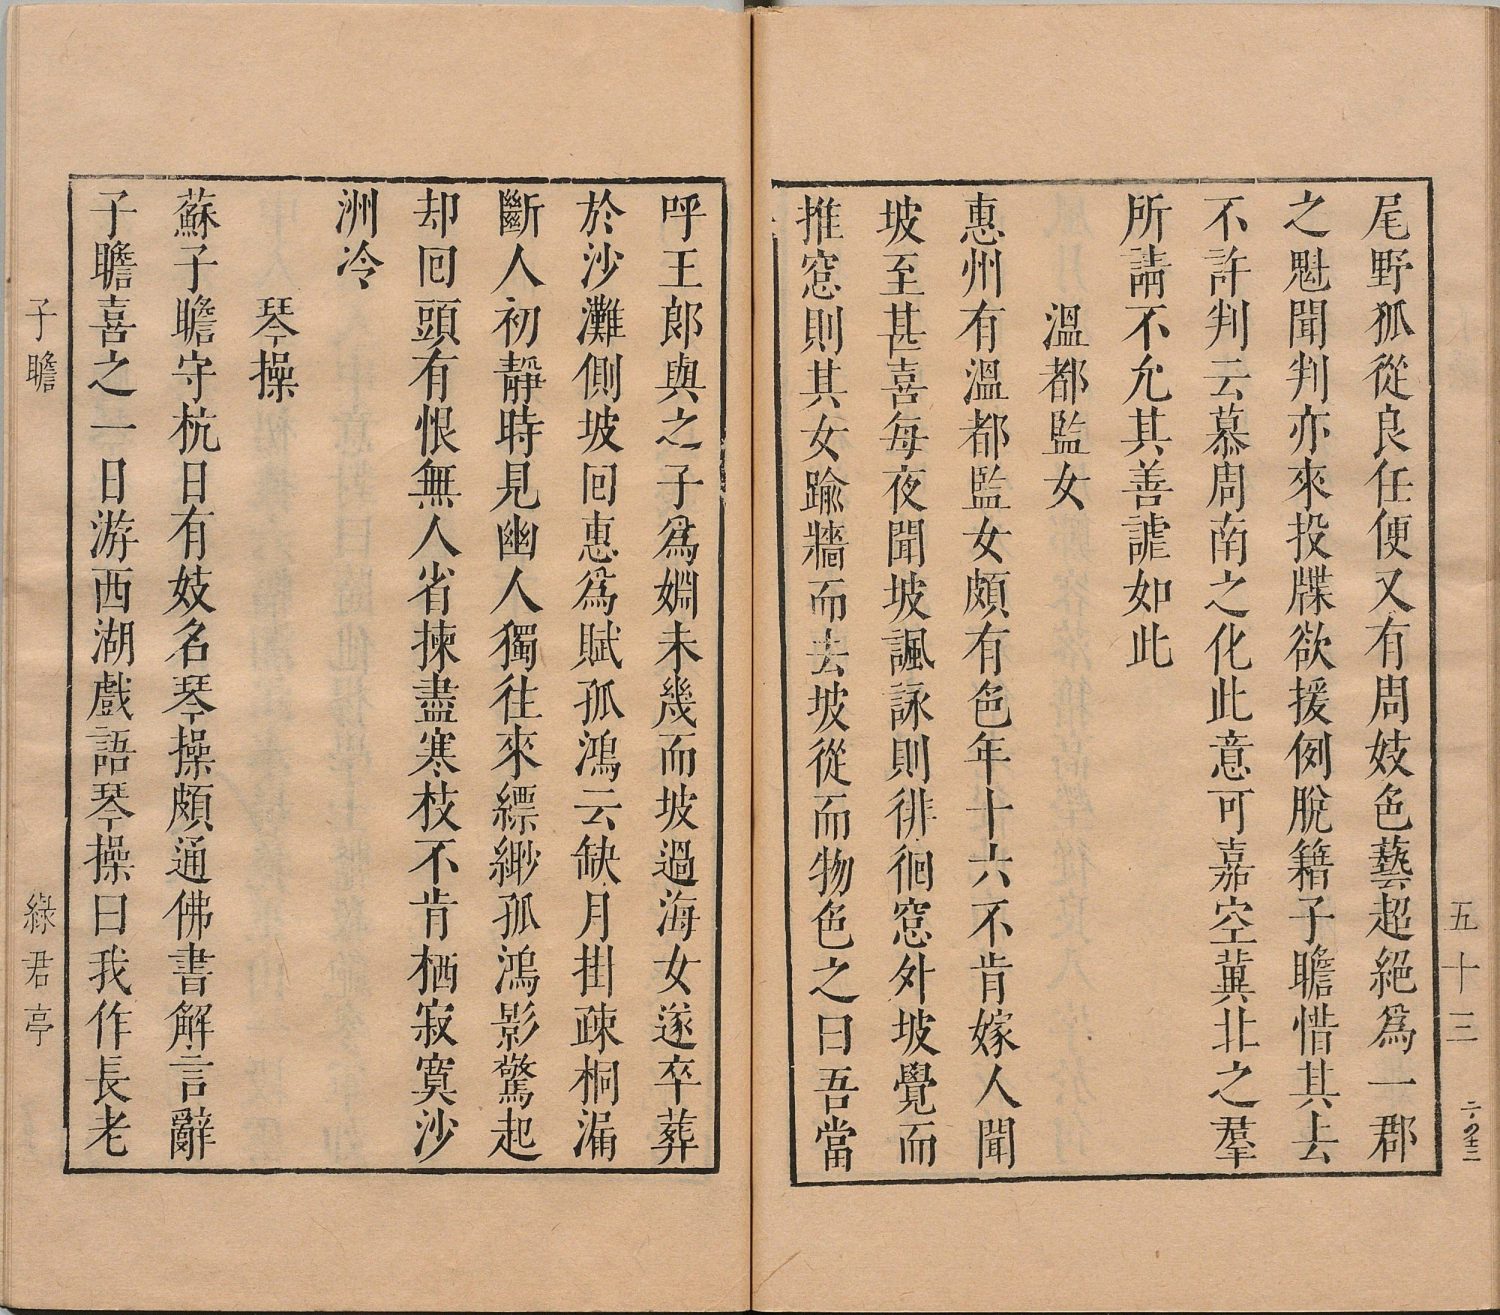 尾野狐從良任便又有周妓色藝超絕爲一郡
之魁聞判亦來投牒欲援例脫籍子瞻惜其去
不許判云慕周南之化此意可嘉空冀北之羣
所請不允其善謔如此
溫都監女
惠州有溫都監女頗有色年十六不肯嫁人聞
坡至甚喜每夜聞坡諷詠則徘徊窓外坡覺而
推窓則其女踰牆而去坡從而物色之曰吾當
五十三
呼王郎與之子爲婣未幾而坡過海女遂卒葬
於沙灘側坡回惠爲賦孤鴻云缺月掛疎桐漏
斷人初靜時見幽人獨往來縹緲孤鴻影驚起
却回頭有恨無人省揀盡寒枝不肯栖寂寞沙
洲冷
琴操
蘇子瞻守杭日有妓名琴操頗通佛書解言辭
子瞻喜之一日游西湖戲語琴操曰我作長老
子瞻
綠君亭